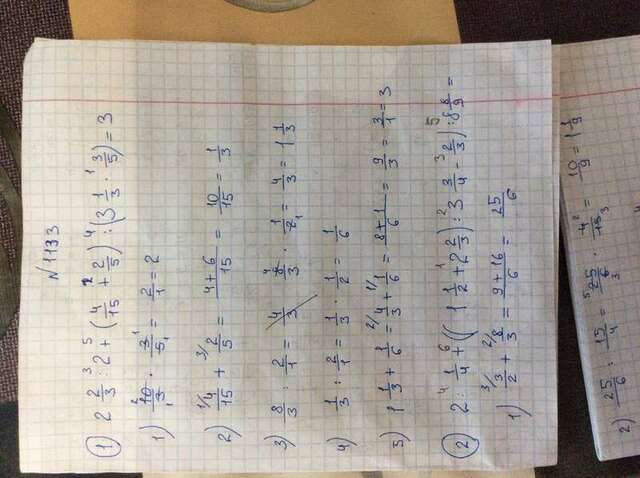 N1133
① 2 2/3 : 2 + (4/15 + 2/5) : (3 1/3 · 3/5) = 3
1) 10/3 · 3/5 = 2/1 = 2
2) 4/15 + 2/5 = 4+6/15 = 10/15 = 1/3
3) 8/3 : 2/1 = 4/3 8/3 · 1/2 = 4/3 = 1 1/3
4) 1/3 : 2/1 = 1/3 · 1/2 = 1/6
5) 1 1/3 + 1/6 = 4/3 + 1/6 = 8+1/6 = 9/3 = 3/1 = 3
② 2 : 1/4 + ((1 1/2 + 2 2/3) : 3 3/4 - 2/3) : 8 8/9 =
1) 3/2 + 8/3 = 9+16/6 = 25/6
2) 25/6 : 15/4 = 25/6 · 4/15 = 10/9 = 1 1/9